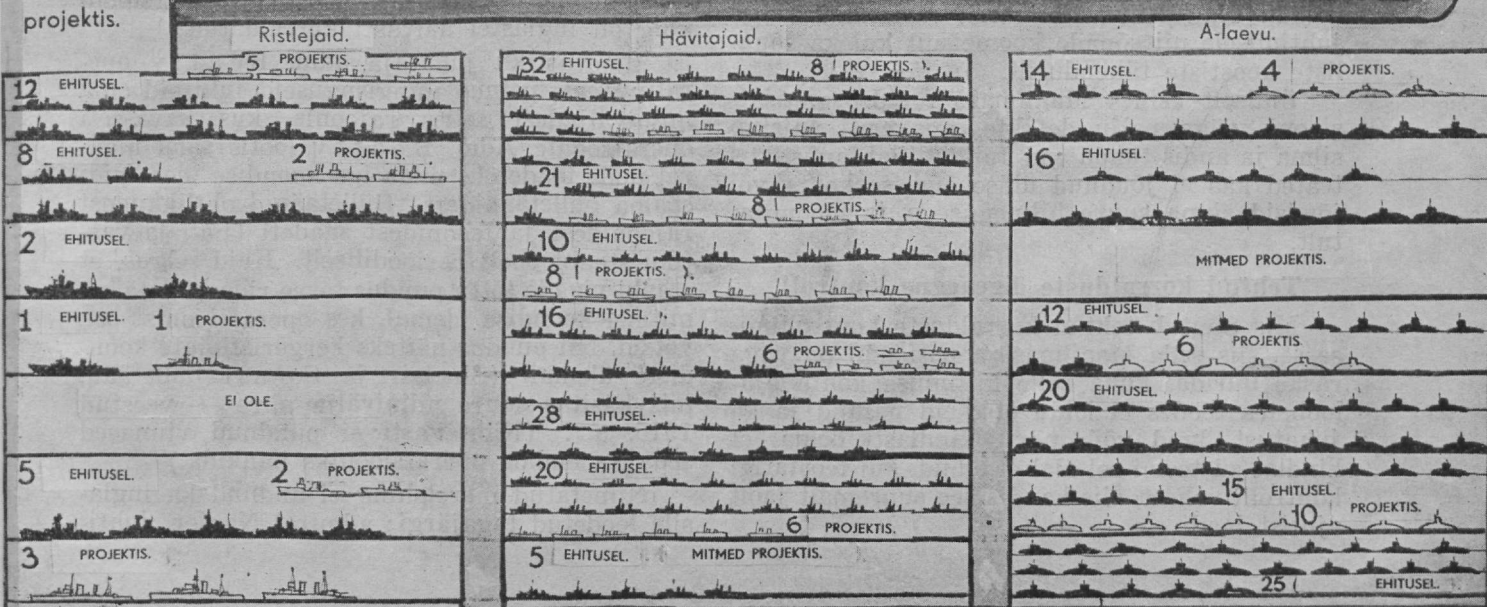 projektis.
Ristlejaid.
5 PROJEKTIS.
12 EHITUSEL.
8 EHITUSEL. 2 PROJEKTIS.
2 EHITUSEL.
1 EHITUSEL. 1 PROJEKTIS.
EI OLE.
5 EHITUSEL. 2 PROJEKTIS.
3 PROJEKTIS.
Hävitajaid.
32 EHITUSEL. 8 PROJEKTIS.
21 EHITUSEL.
8 PROJEKTIS.
10 EHITUSEL.
8 PROJEKTIS.
16 EHITUSEL.
6 PROJEKTIS.
28 EHITUSEL.
20 EHITUSEL.
6 PROJEKTIS.
5 EHITUSEL. MITMED PROJEKTIS.
A-laevu.
14 EHITUSEL. 4 PROJEKTIS.
16 EHITUSEL.
MITMED PROJEKTIS.
12 EHITUSEL.
6 PROJEKTIS.
20 EHITUSEL.
15 EHITUSEL.
10 PROJEKTIS.
25 EHITUSEL.